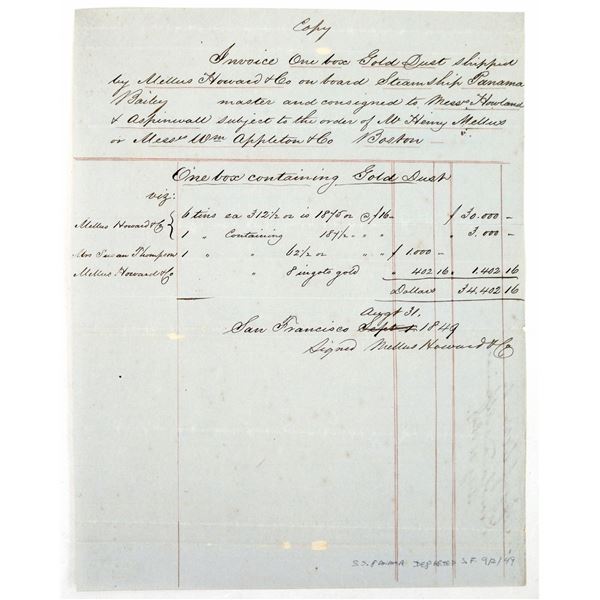 Copy
Invoice One box Gold Dust shipped
by Mellus Howard & Co on board Steamship Panama
Bailey master and consigned to Messrs Howland
& Aspinwall subject to the order of Mr Henry Mellus
or Messrs Wm Appleton & Co Boston —
One box containing Gold Dust
viz:
Mellus Howard & Co { 6 tins ea 312 1/2 oz is 1875 oz @ $16 - $ 30.000 -
1 " Containing 187 1/2 - " " " 3.000 -
Mrs Susan Thompson 1 " " 62 1/2 oz " $ 1.000 -
Mellus Howard & Co " 8 ingots gold " 402 16 " 1.402 16
Dollars 34.402 16
Augt 31,
San Francisco Sept 1 1849
Signed Mellus Howard & Co
S.S. PANAMA DEPARTED S.F. 9/2/49